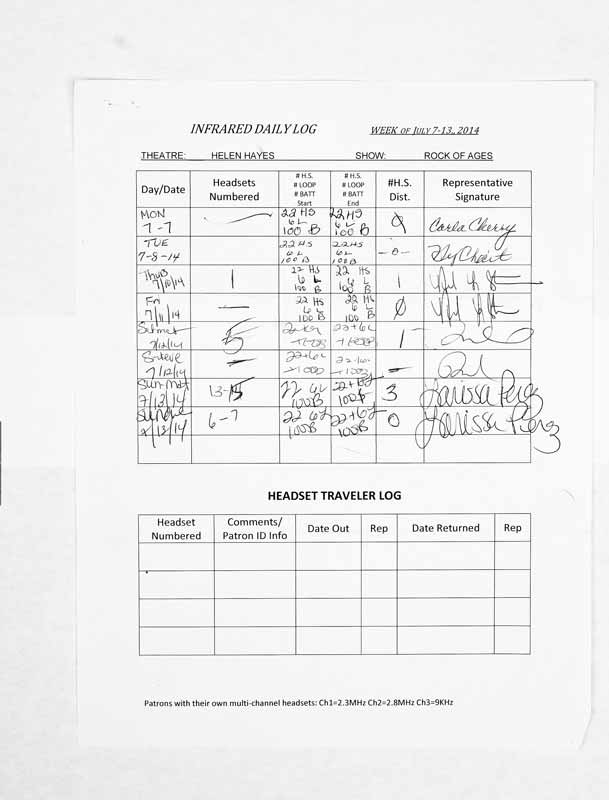 INFRARED DAILY LOG WEEK OF JULY 7-13, 2014
THEATRE: HELEN HAYES SHOW: ROCK OF AGES
Day/Date Headsets Numbered # H.S. # LOOP # BATT Start # H.S. # LOOP # BATT End #H.S. Dist. Representative Signature
MON 7-7 22 HS 6 L 100 B 22 HS 6 L 100 B 0 Carla Cherry
TUE 7-8-14 22 HS 6 L 100 B 22 HS 6 L 100 B -0-
Thurs 7/10/14 1 22 HS 6 L 100 B 22 HS 6 L 100 B 1
Fri 7/11/14 — 22 HS 6 L 100 B 22 HS 6 L 100 B 0
7/12/14 5 22+6L 1
7/12/14 22+6L +100B 22+6L +100B —
Sun mat 7/13/14 13-15 22 6L 100B 22+6L 100B 3 Larissa Perez
7/13/14 6-7 22 6L 100B 22+6L 100B 0 Larissa Perez
HEADSET TRAVELER LOG
Headset Numbered Comments/ Patron ID Info Date Out Rep Date Returned Rep
Patrons with their own multi-channel headsets: Ch1=2.3MHz Ch2=2.8MHz Ch3=9KHz